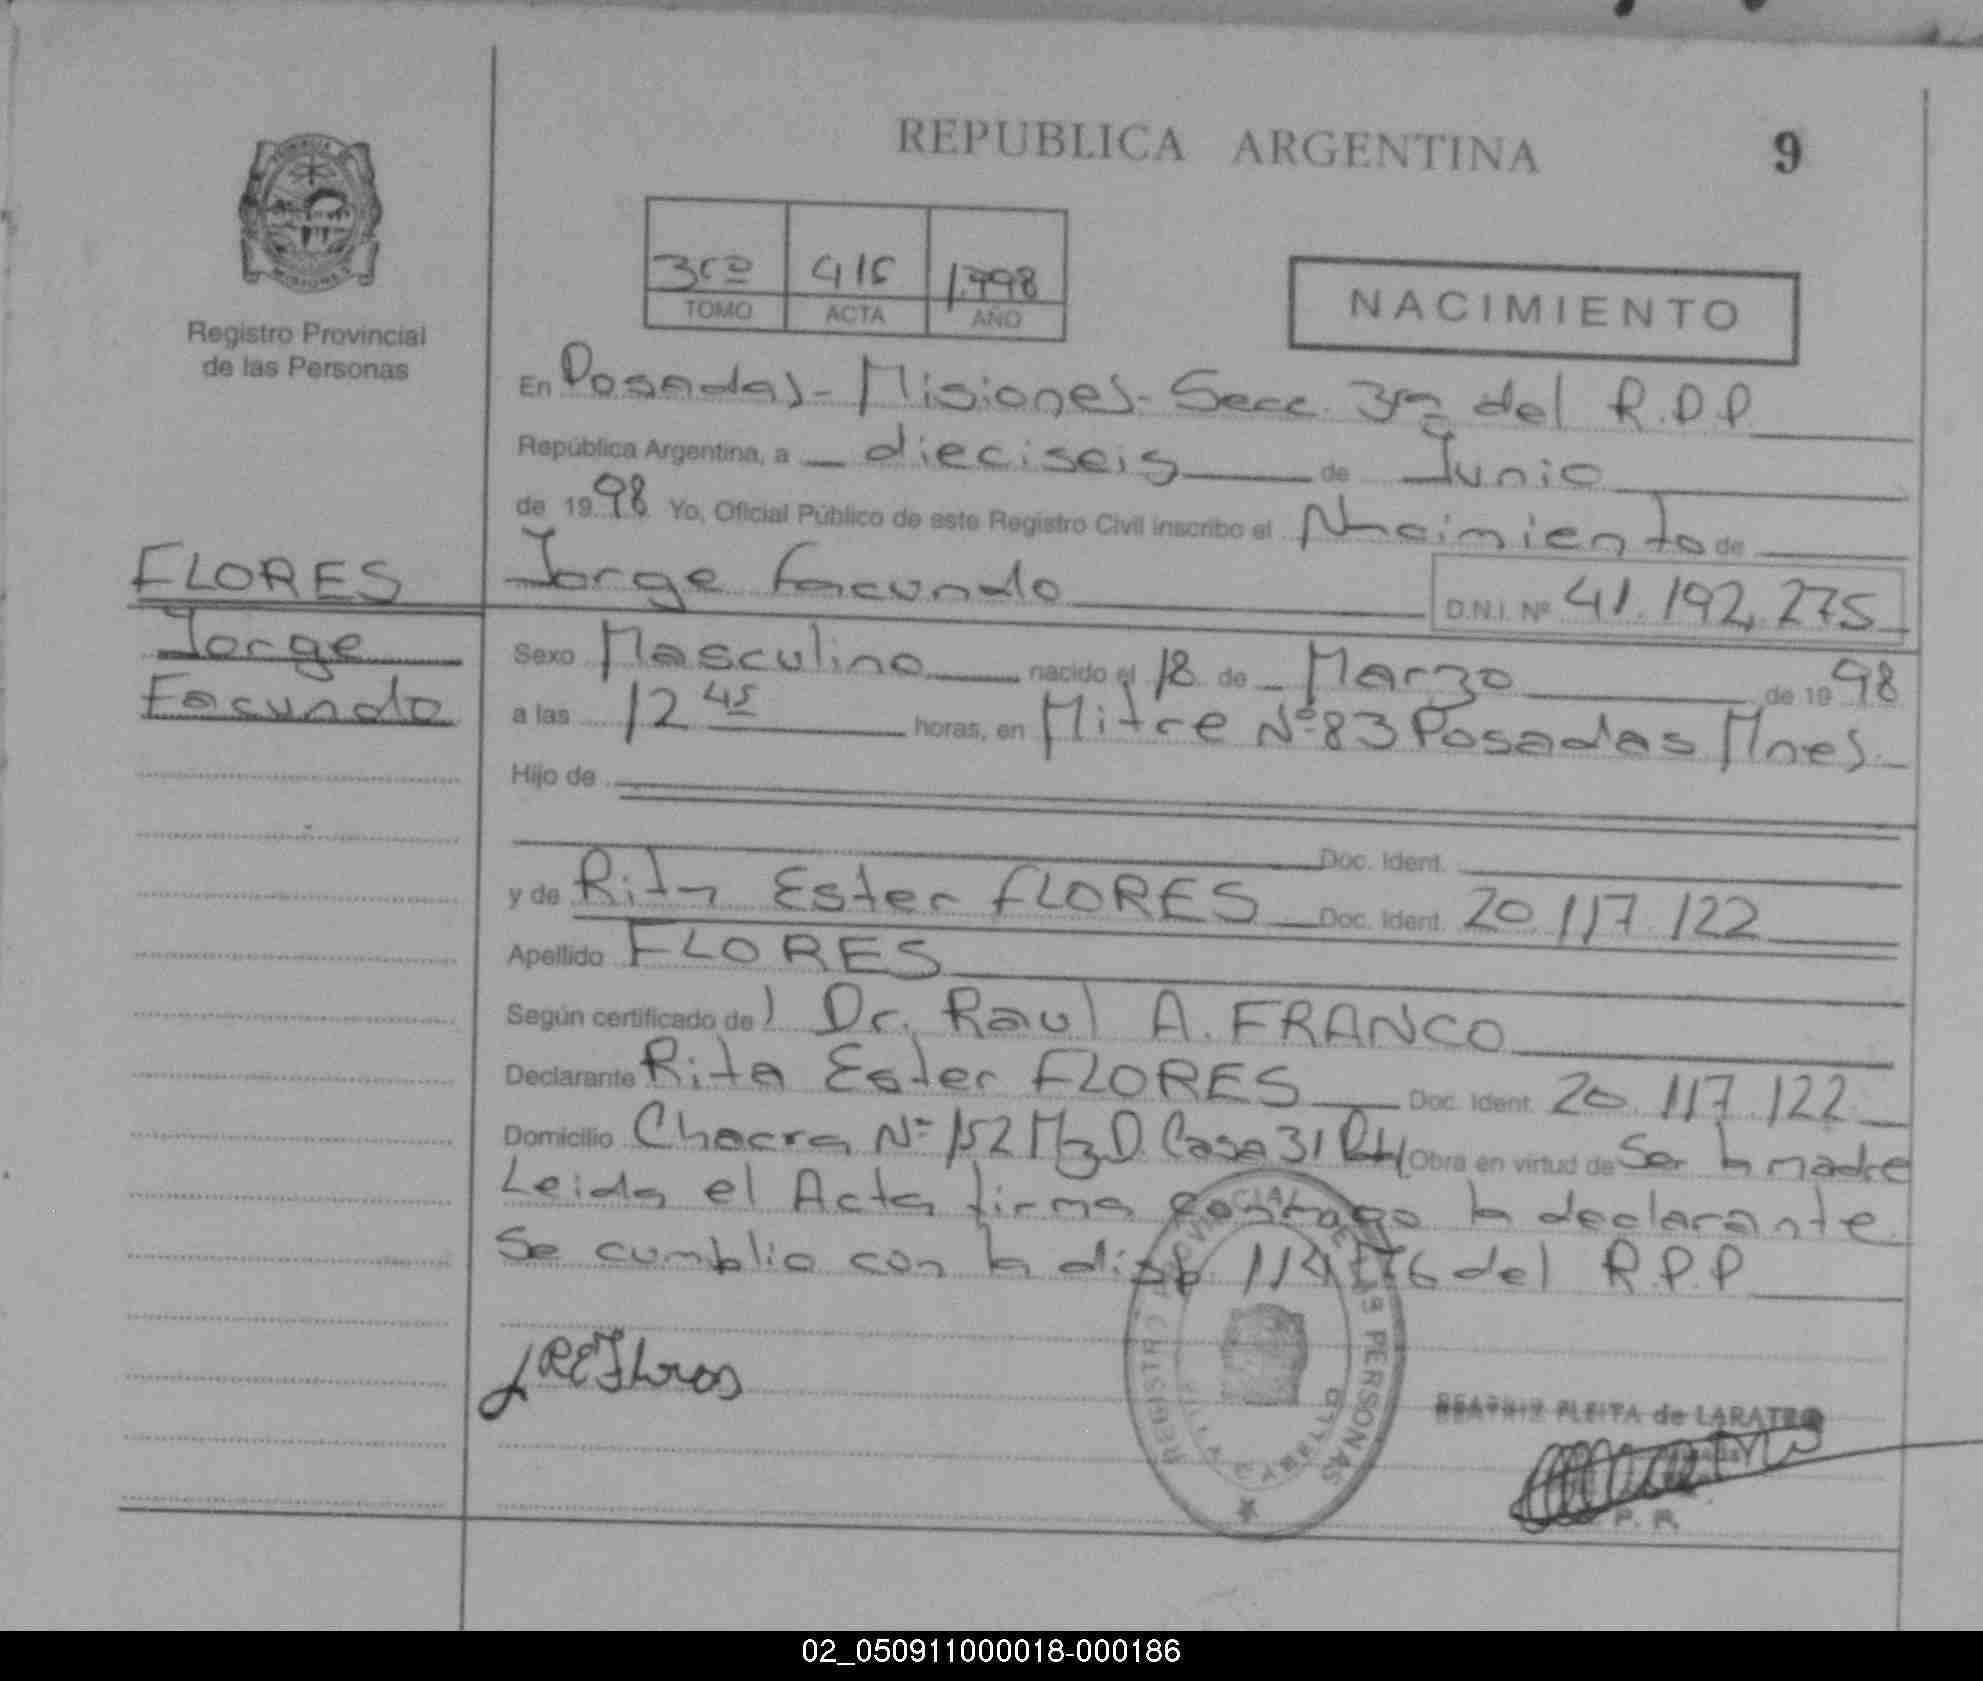 REPUBLICA ARGENTINA 9
Registro Provincial
de las Personas
3ro 415 1.998
TOMO ACTA AÑO
NACIMIENTO
En Posadas - Misiones - Secc. 3ra del R.P.P
República Argentina, a dieciseis de Junio
de 1998 Yo, Oficial Público de este Registro Civil inscribo el Nacimiento de
FLORES
Jorge
Facundo
Jorge Facundo D.N.I. Nº 41.192.275
Sexo Masculino nacido el 18 de Marzo de 1998
a las 12 45 horas, en Mitre Nº 83 Posadas Mnes.
Hijo de
Doc. Ident.
y de Rita Ester FLORES Doc. Ident. 20.117.122
Apellido FLORES
Según certificado del Dr. Raul A. FRANCO
Declarante Rita Ester FLORES Doc. Ident. 20.117.122
Domicilio Chacra Nº 152 Mz D. Casa 31 Obra en virtud de Ser la madre
Leida el Acta firma conmigo la declarante.
Se cumplio con la disp. 114/76 del R.P.P
REFlores
REGISTRO PROVINCIAL DE LAS PERSONAS
BEATRIZ PLEITA de LARATRO
02_050911000018-000186